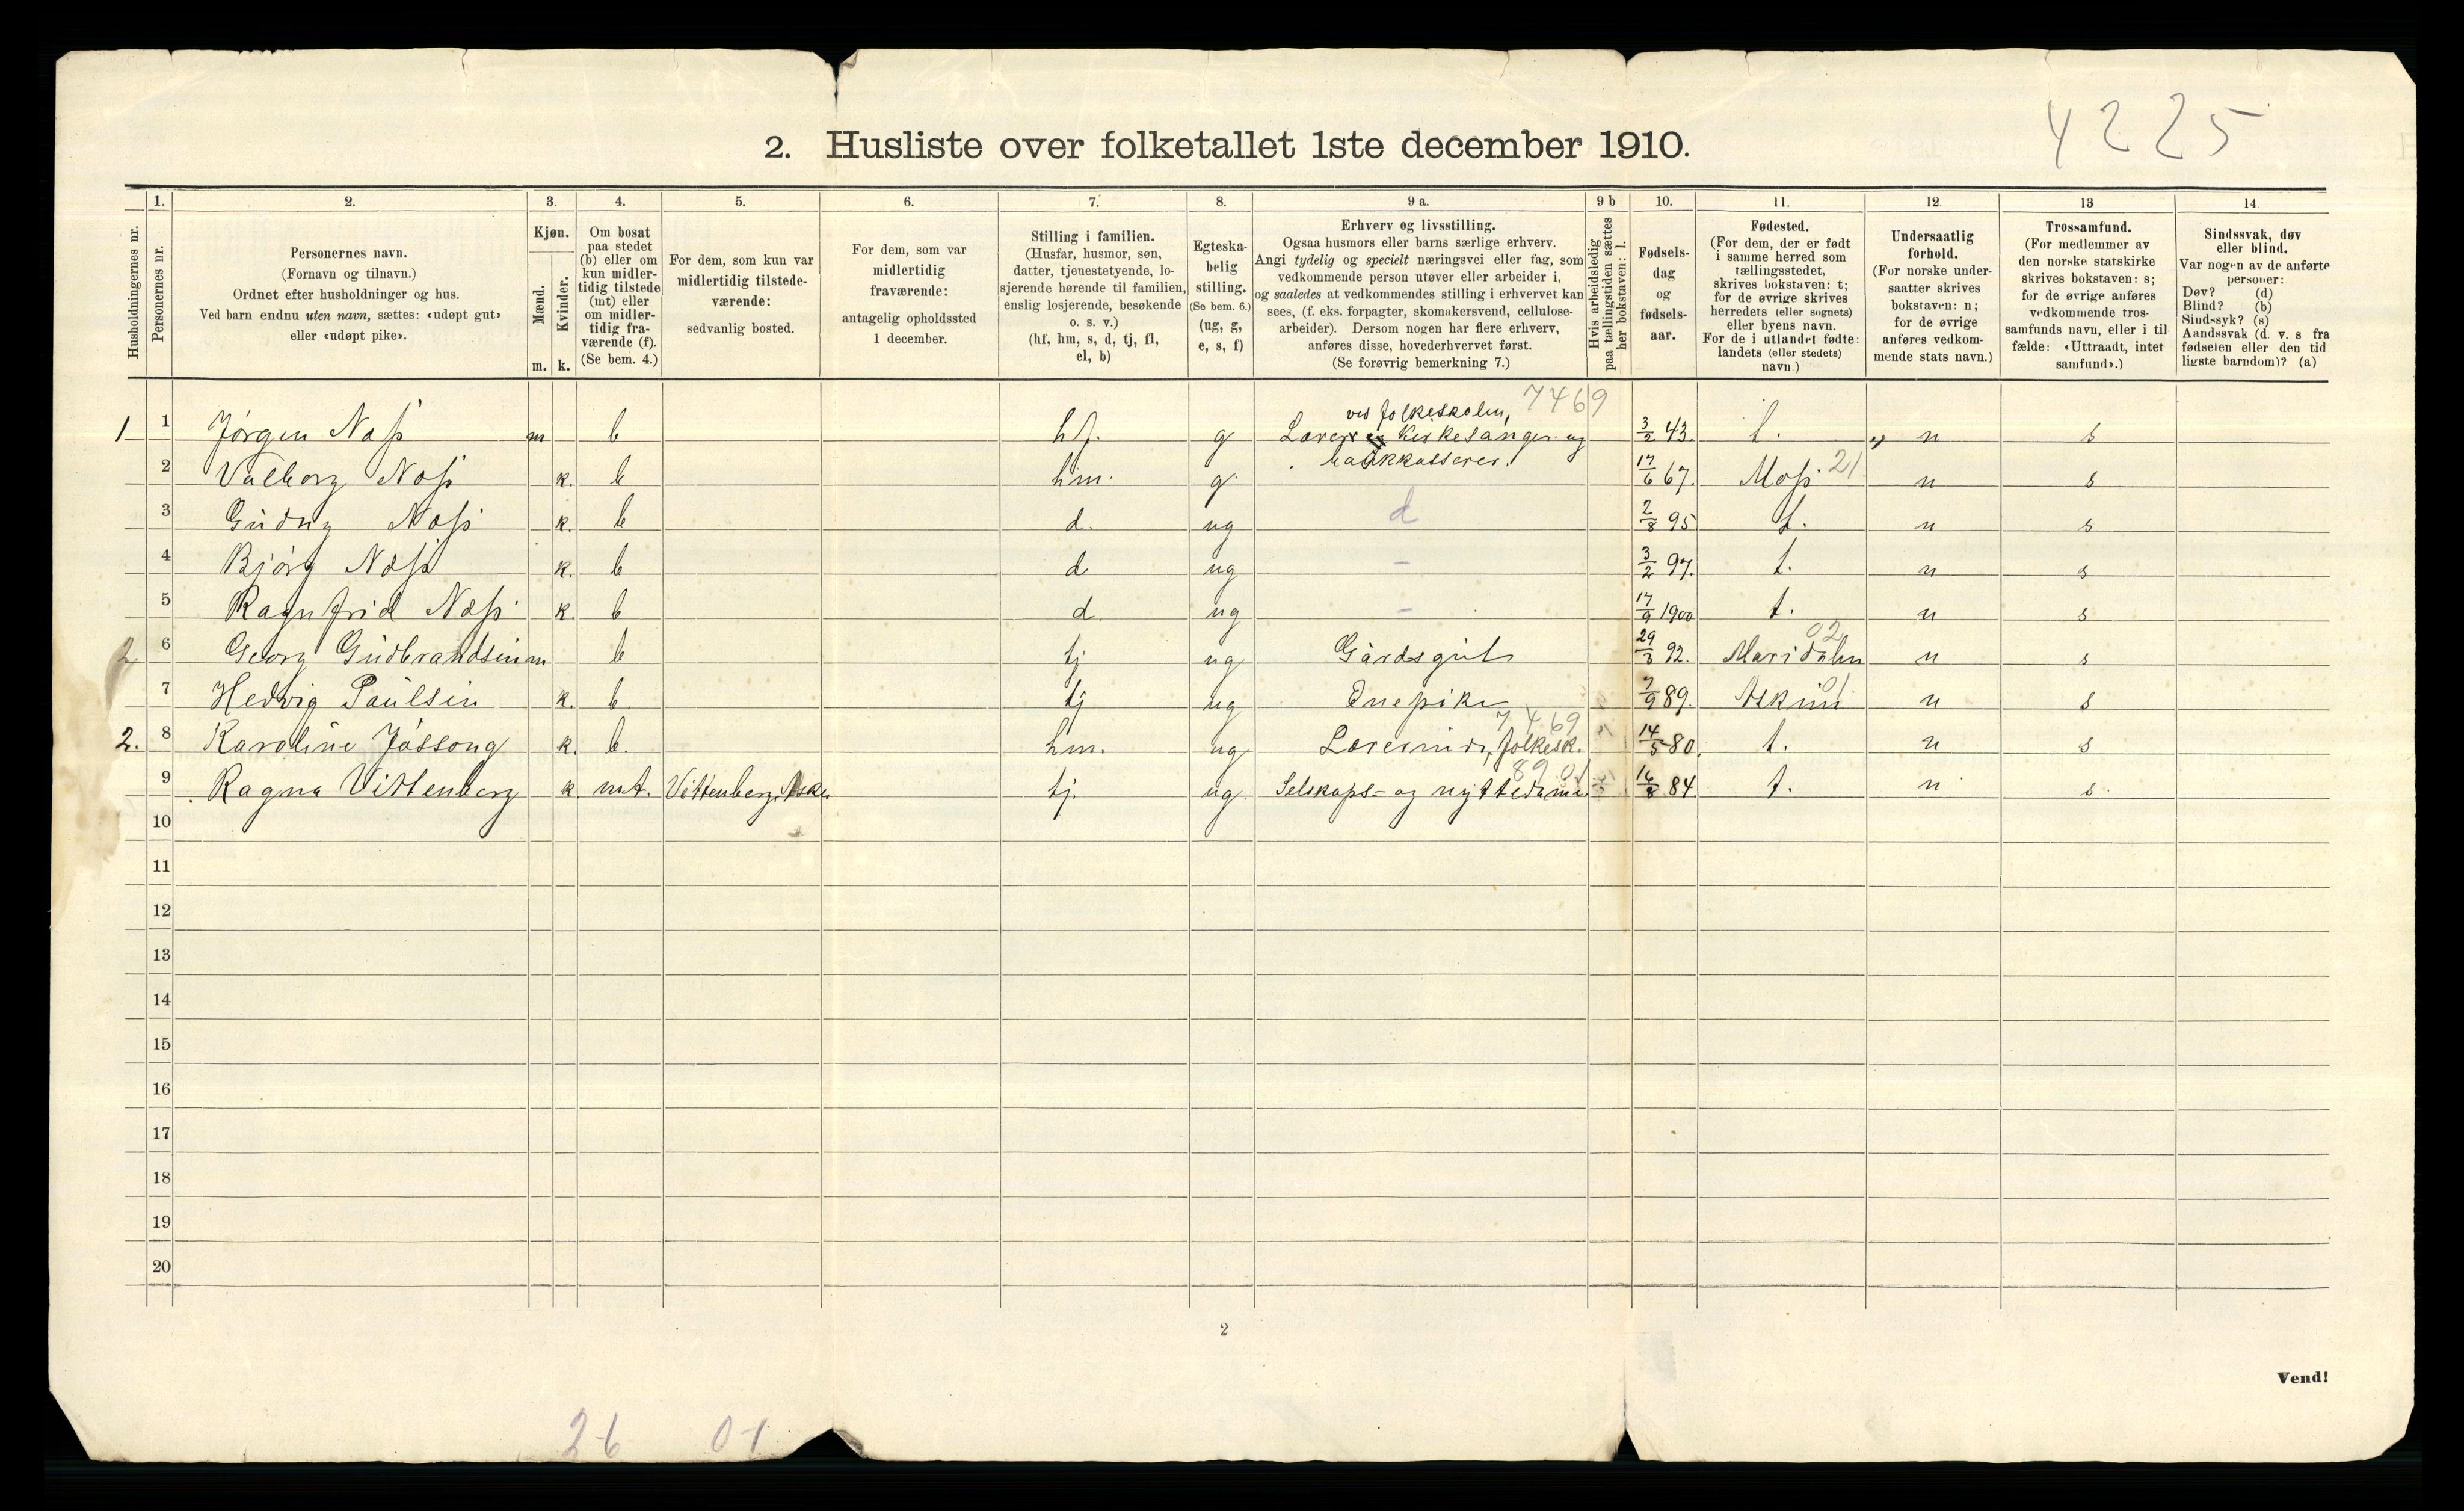 4225
2. Husliste over folketallet 1ste december 1910.
Husholdningernes nr.
1.
Personernes nr.
2.
Personernes navn.
(Fornavn og tilnavn.)
Ordnet efter husholdninger og hus.
Ved barn endnu uten navn, sættes: «udøpt gut»
eller «udøpt pike».
3.
Kjøn.
Mænd.
Kvinder.
m.
k.
4.
Om bosat
paa stedet
(b) eller om
kun midler-
tidig tilstede
(mt) eller
om midler-
tidig fra-
værende (f).
(Se bem. 4.)
5.
For dem, som kun var
midlertidig tilstede-
værende:
sedvanlig bosted.
6.
For dem, som var
midlertidig
fraværende:
antagelig opholdssted
1 december.
7.
Stilling i familien.
(Husfar, husmor, søn,
datter, tjenestetyende, lo-
sjerende hørende til familien,
enslig losjerende, besøkende
o. s. v.)
(hf, hm, s, d, tj, fl,
el, b)
8.
Egteska-
belig
stilling.
(Se bem. 6.)
(ug, g,
e, s, f)
9 a.
Erhverv og livsstilling.
Ogsaa husmors eller barns særlige erhverv.
Angi tydelig og specielt næringsvei eller fag, som
vedkommende person utøver eller arbeider i,
og saaledes at vedkommendes stilling i erhvervet kan
sees, (f. eks. forpagter, skomakersvend, cellulose-
arbeider). Dersom nogen har flere erhverv,
anføres disse, hovederhvervet først.
(Se forøvrig bemerkning 7.)
9 b
Hvis arbeidsledig
paa tællingstiden sættes
her bokstaven: l.
10.
Fødsels-
dag
og
fødsels-
aar.
11.
Fødested.
(For dem, der er født
i samme herred som
tællingsstedet,
skrives bokstaven: t;
for de øvrige skrives
herredets (eller sognets)
eller byens navn.
For de i utlandet fødte:
landets (eller stedets)
navn.)
12.
Undersaatlig
forhold.
(For norske under-
saatter skrives
bokstaven: n;
for de øvrige
anføres vedkom-
mende stats navn.)
13
Trossamfund.
(For medlemmer av
den norske statskirke
skrives bokstaven: s;
for de øvrige anføres
vedkommende tros-
samfunds navn, eller i til-
fælde: «Uttraadt, intet
samfund».)
14
Sindssvak, døv
eller blind.
Var nogen av de anførte
personer:
Døv? (d)
Blind? (b)
Sindssyk? (s)
Aandssvak (d. v. s fra
fødselen eller den tid
ligste barndom)? (a)
7469
ved folkeskolen,
1 1 Jørgen Næss m b hf. g Lærer Kirkesanger og 3/2 43. t. n s
bankkasserer.
2 Valborg Næss k. b hm. g. 17/6 67. Moss 21 n s
3 Gudny Næss k. b d. ug d 2/8 95 t. n s
4 Bjørg Næss k. b d ug - 3/2 97. t. n s
5 Ragnfrid Næss k. b d. ug - 17/9 1900 t. n s
02
2 6 Georg Gudbrandsen m b tj ug Gårdsgut 29/3 92. Maridalen n s
01
7 Hedvig Paulsen k. b. tj ug Inepike 7/9 89. Askim n s
7469
2. 8 Karoline Jøssong k. b. hm. ug Lærerinde, folkesk. 14/5 80. t. n s
8901
9 Ragna Vittenberg k. mt. Vittenberg, Asker tj. ug. Selskaps- og nyttedame 16/8 84. t. n s.
10
11
12
13
14
15
16
17
18
19
20
2
Vend!
26 01